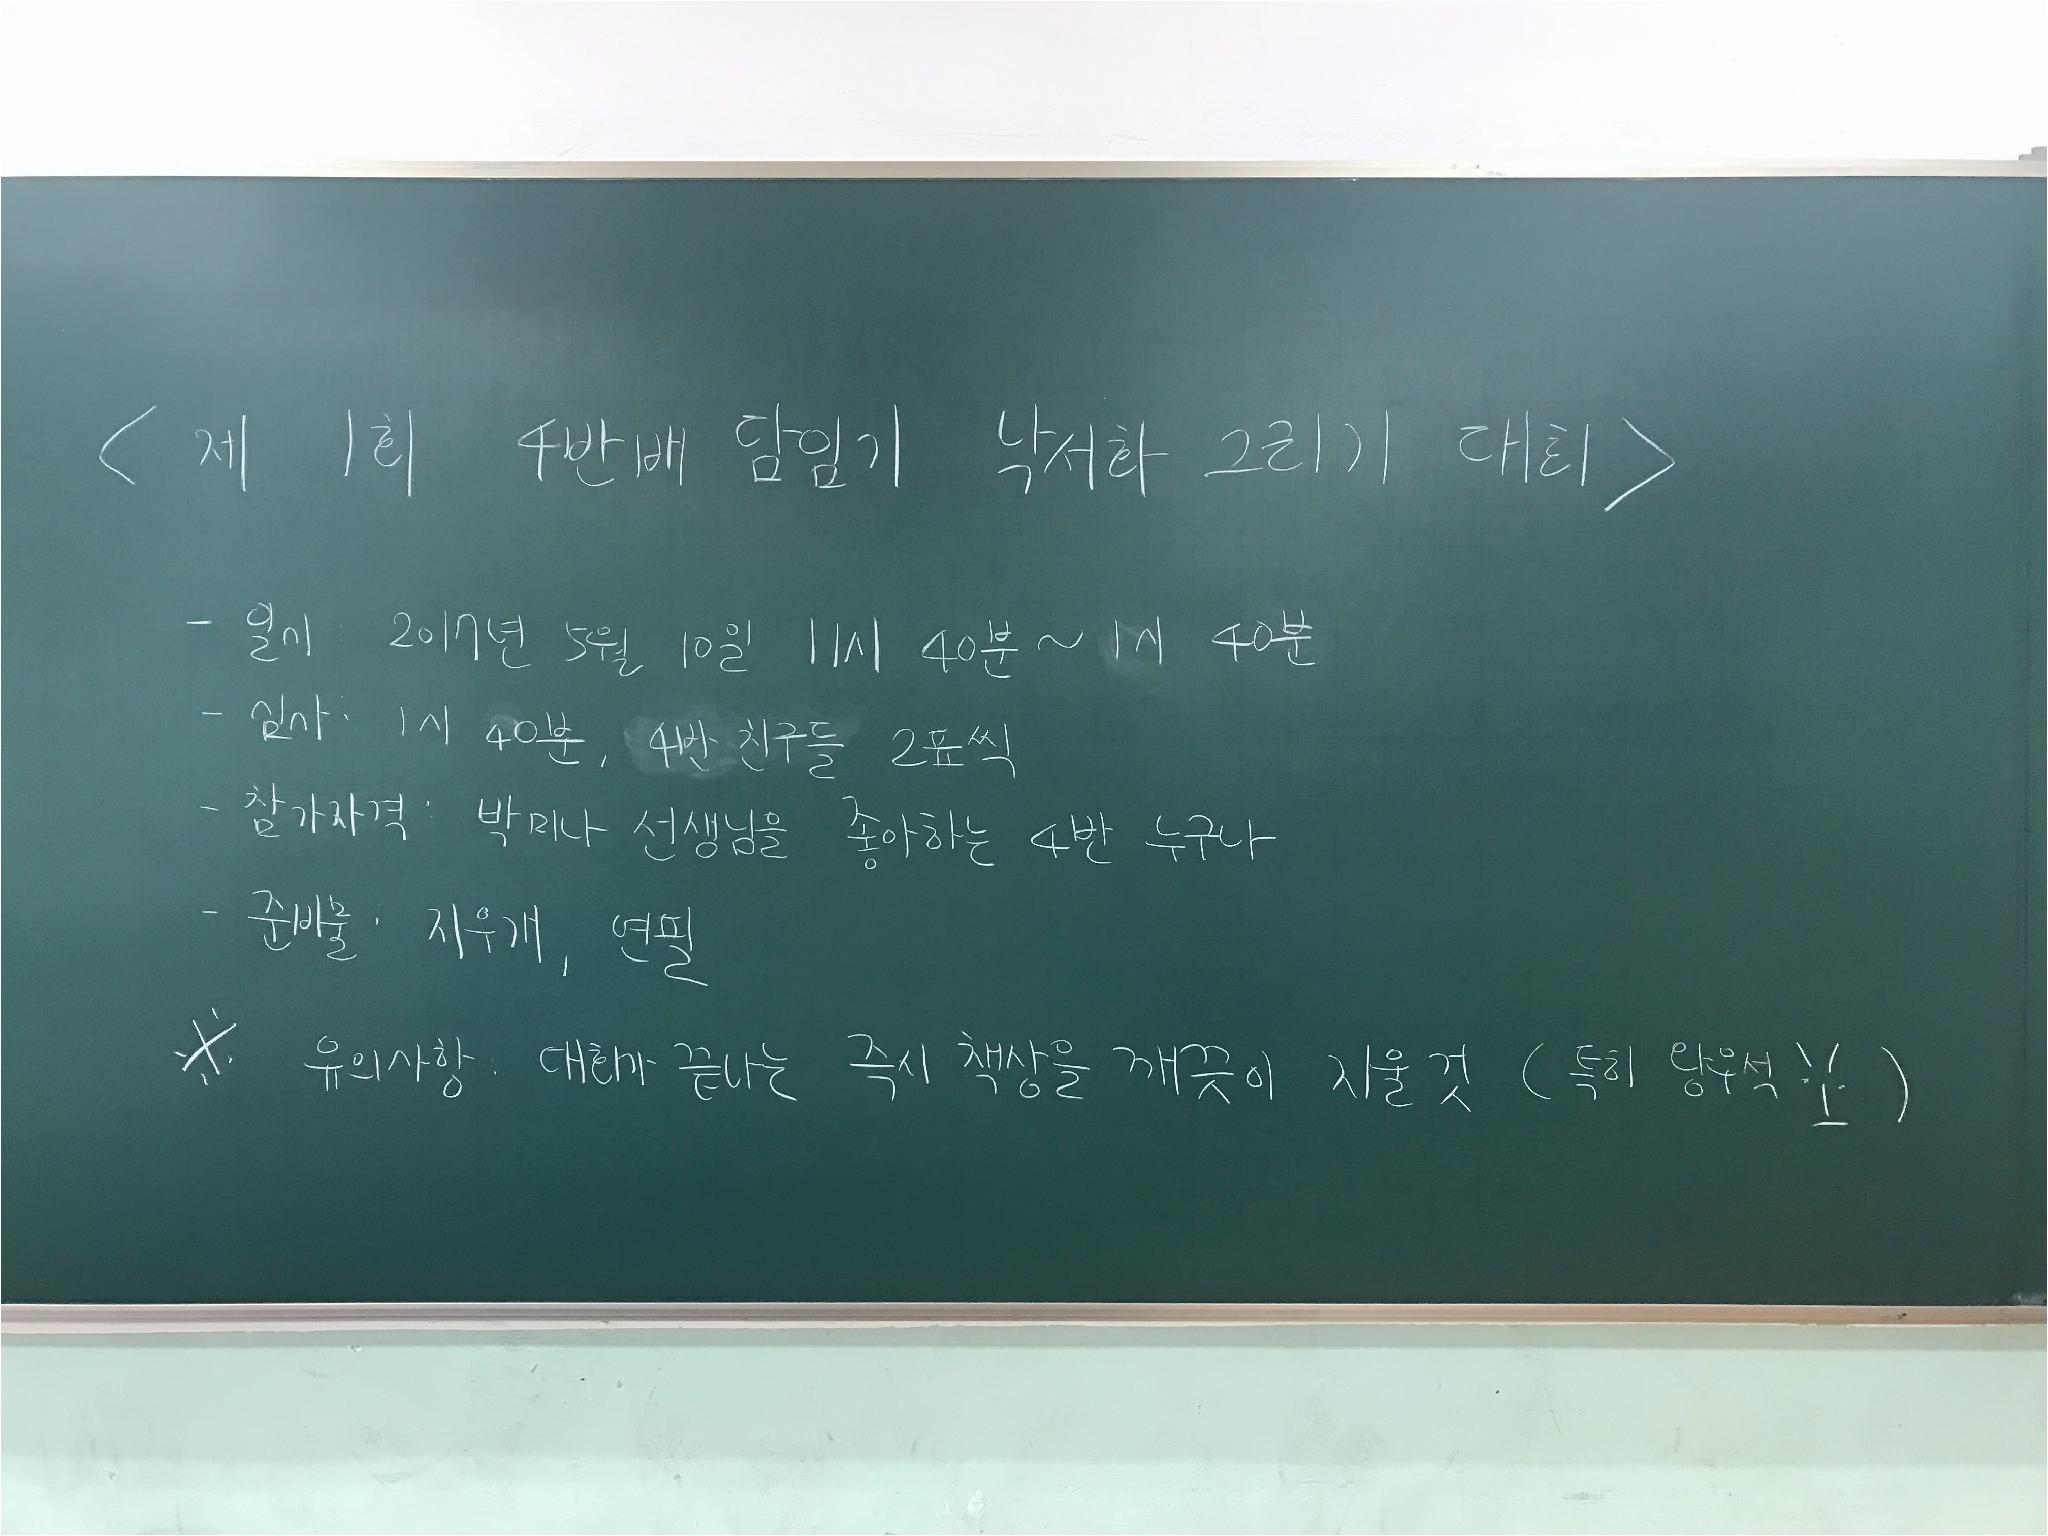 < 제 1회 4반배 담임기 낙서화 그리기 대회 >
- 일시 : 2017년 5월 10일 11시 40분 ~ 1시 40분
- 심사 : 1시 40분, 4반 친구들 2표씩
- 참가자격 : 박미나 선생님을 좋아하는 4반 누구나
- 준비물 : 지우개, 연필
※ 유의사항 : 대회가 끝나는 즉시 책상을 깨끗이 지울 것 (특히 왕우석 )